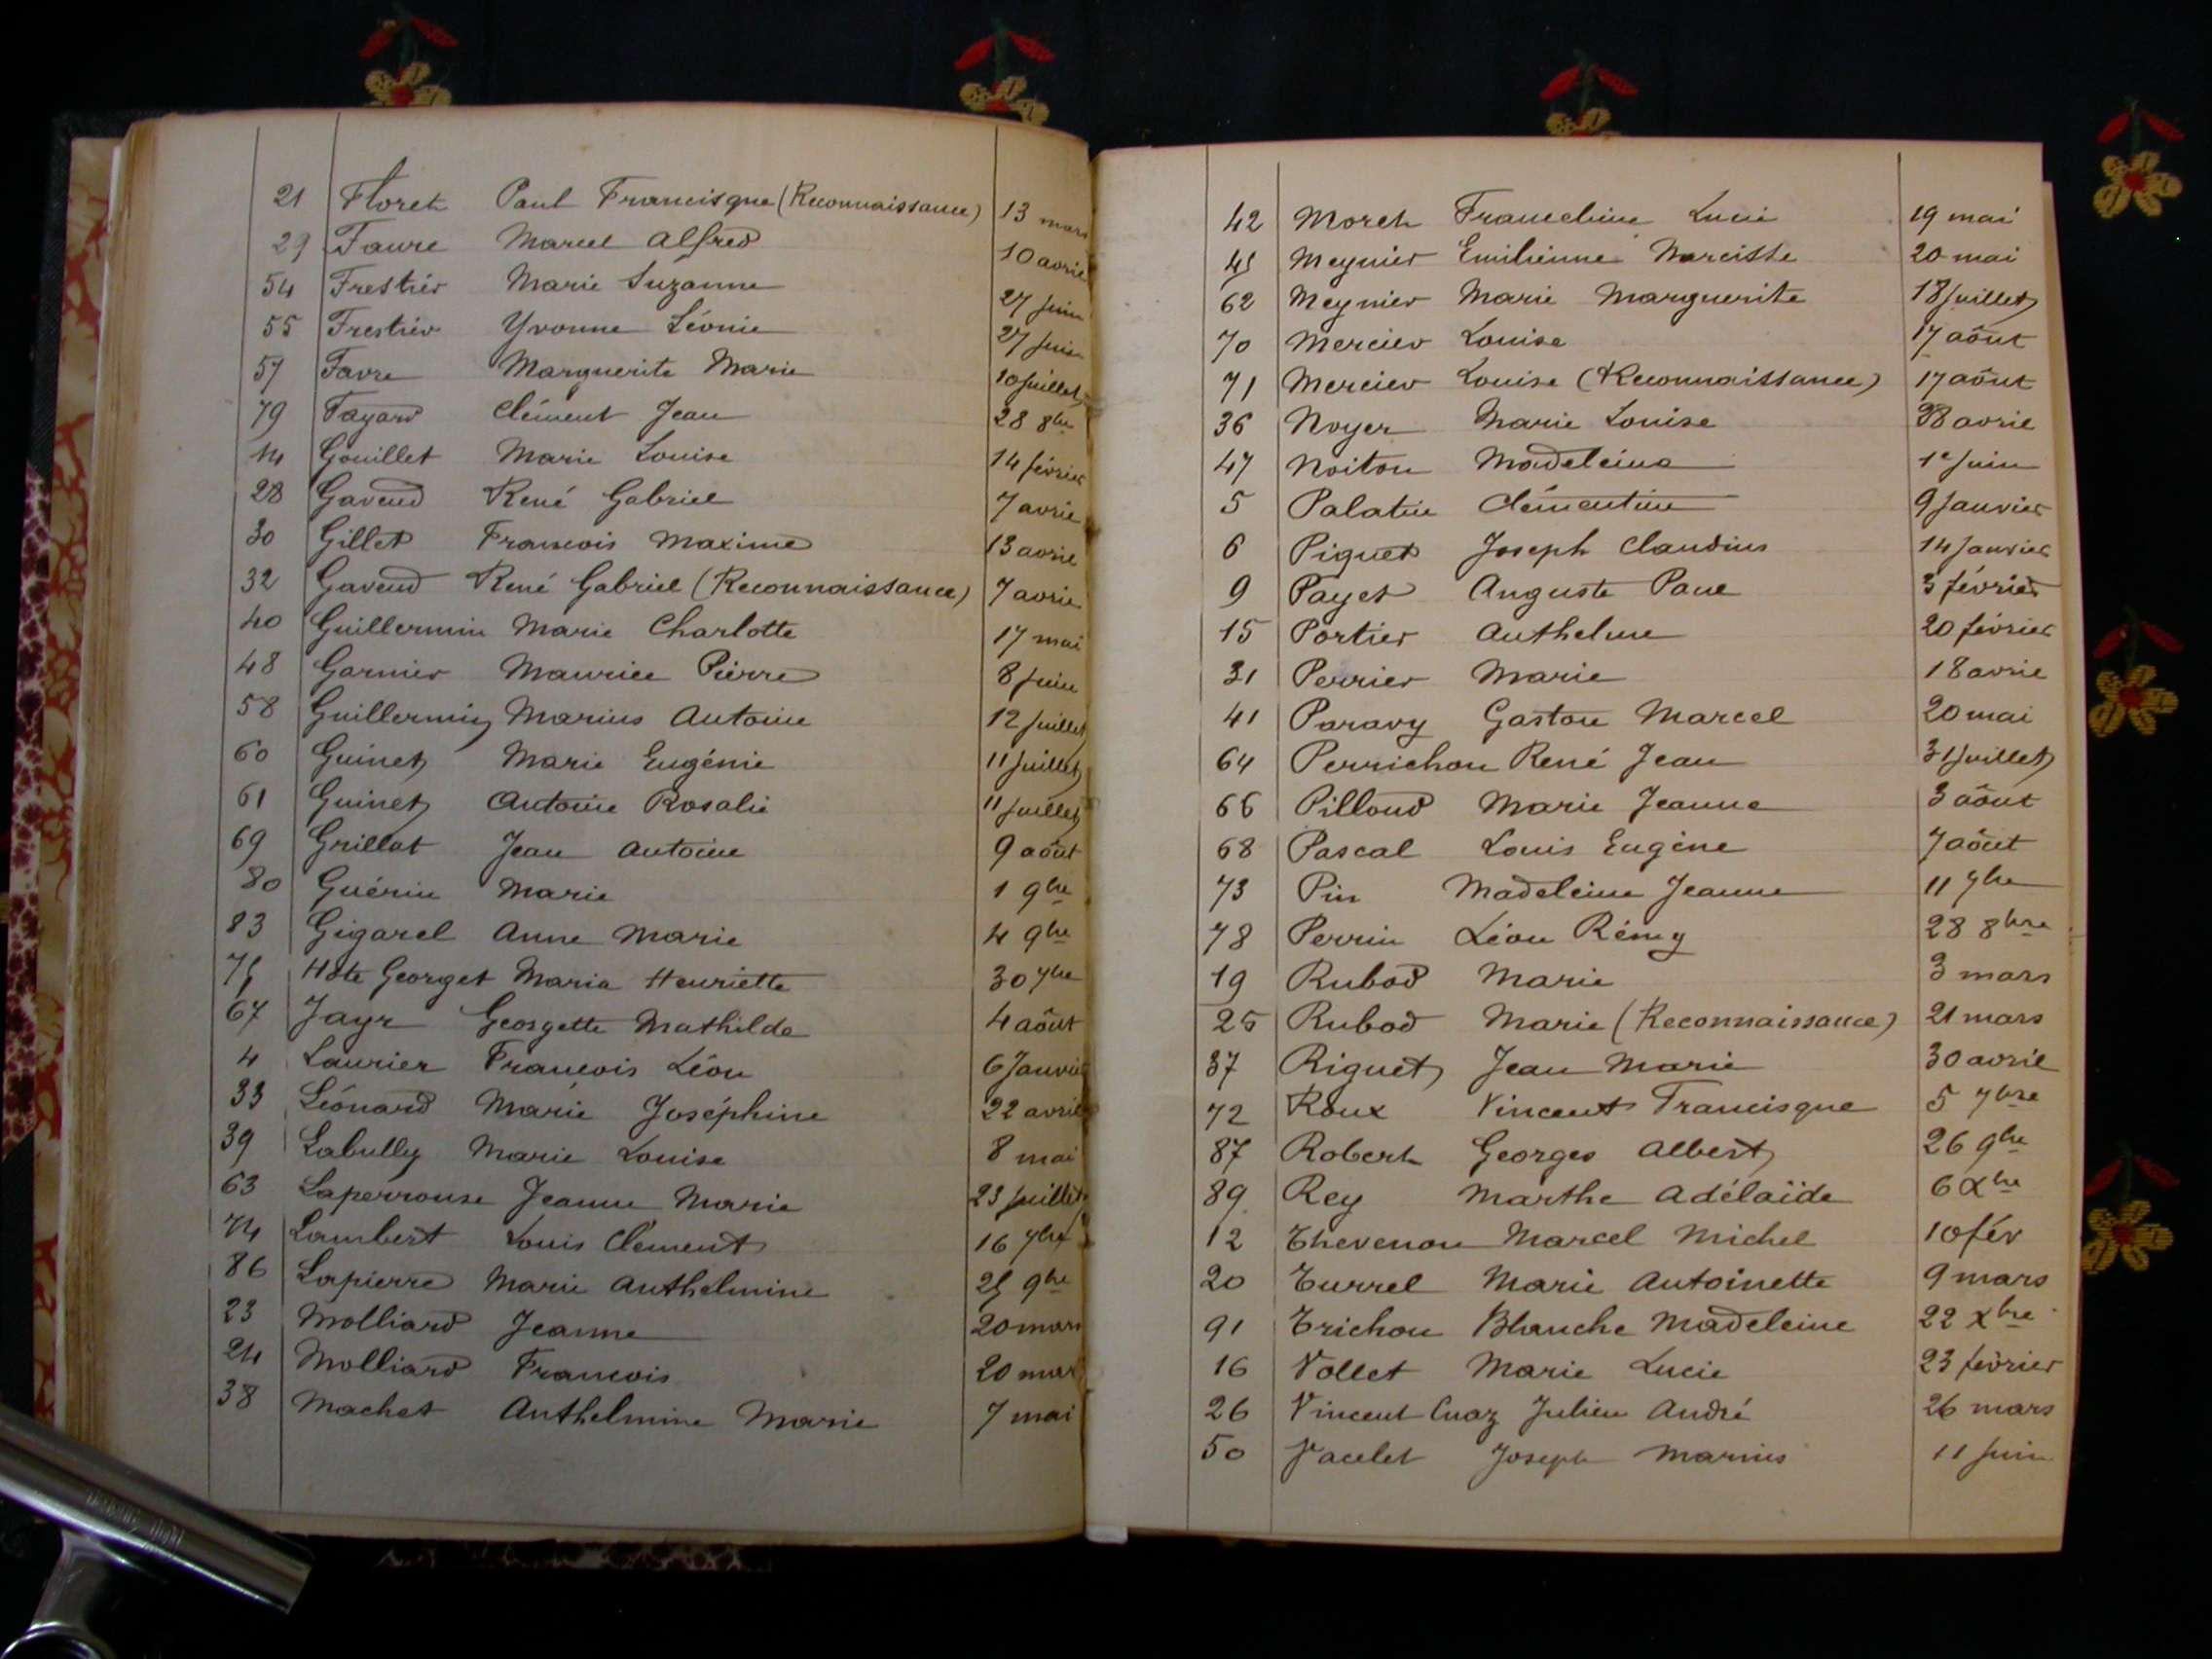 21 Floret Paul Francisque (Reconnaissance) 13 mars
29 Favre Marcel Alfred 10 avril
54 Frestier Marie Suzanne 27 juin
55 Frestier Yvonne Léonie 27 juin
57 Favre Marguerite Marie 10 juillet
79 Fayard Clément Jean 28 8bre
14 Gouillet Marie Louise 14 février
28 Gavend René Gabriel 7 avril
30 Gillet Francois Maxime 13 avril
32 Gavend René Gabriel (Reconnaissance) 7 avril
40 Guillermin Marie Charlotte 17 mai
48 Garnier Maurice Pierre 8 juin
58 Guillermin Marius Antoine 12 juillet
60 Guinet Marie Eugénie 11 juillet
61 Guinet Antoine Rosalie 11 juillet
69 Grillat Jean Antoine 9 août
80 Guérin Marie 1 9bre
83 Gigarel Anne Marie 4 9bre
75 Hote Georget Maria Henriette 30 7bre
67 Jayr Georgette Mathilde 4 août
4 Laurier Francois Léon 6 Janvier
33 Léonard Marie Joséphine 22 avril
39 Labully Marie Louise 8 mai
63 Laperrouse Jeanne Marie 23 juillet
74 Lambert Louis Clément 16 7bre
86 Lapierre Marie Anthelmine 25 9bre
23 Molliard Jeanne 20 mars
24 Molliard Francois 20 mars
38 Machet Anthelmine Marie 7 mai
42 Morel Franceline Lucie 19 mai
45 Meynier Emilienne Narcisse 20 mai
62 Meynier Marie Marguerite 18 juillet
70 Mercier Louise 17 août
71 Mercier Louise (Reconnaissance) 17 août
36 Noyer Marie Louise 28 avril
47 Noiton Madeleine 1er Juin
5 Palatin Clémentine 9 Janvier
6 Piguet Joseph Claudius 14 Janvier
9 Payet Auguste Paul 3 février
15 Portier Anthelme 20 février
31 Perrier Marie 18 avril
41 Paravy Gaston Marcel 20 mai
64 Perrichon René Jean 31 juillet
66 Pilloud Marie Jeanne 3 août
68 Pascal Louis Eugène 7 août
73 Pin Madeleine Jeanne 11 7bre
78 Perrin Léon Rémy 28 8bre
19 Rubod Marie 3 mars
25 Rubod Marie (Reconnaissance) 21 mars
37 Riguet Jean Marie 30 avril
72 Roux Vincent Francisque 5 7bre
87 Robert Georges Albert 26 9bre
89 Rey Marthe Adélaïde 6 Xbre
12 Thevenon Marcel Michel 10 fév
20 Turrel Marie Antoinette 9 mars
91 Trichon Blanche Madeleine 22 Xbre
16 Vollet Marie Lucie 23 février
26 Vincent Cuaz Julien André 26 mars
50 Vacelet Joseph Marius 11 Juin